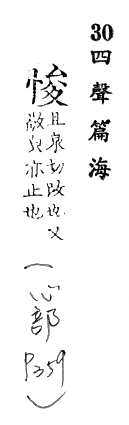 30 四聲篇海
悛 且泉切改也又
敬皃亦止也
(心部 P259)